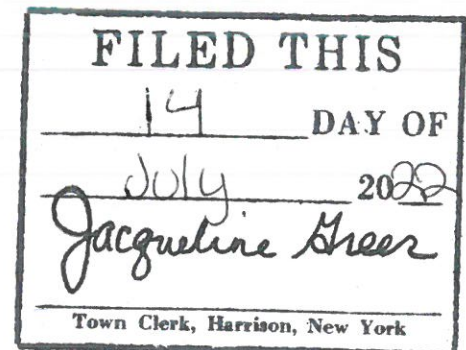 FILED THIS
14 DAY OF
July 2022
Jacqueline Greer
Town Clerk, Harrison, New York